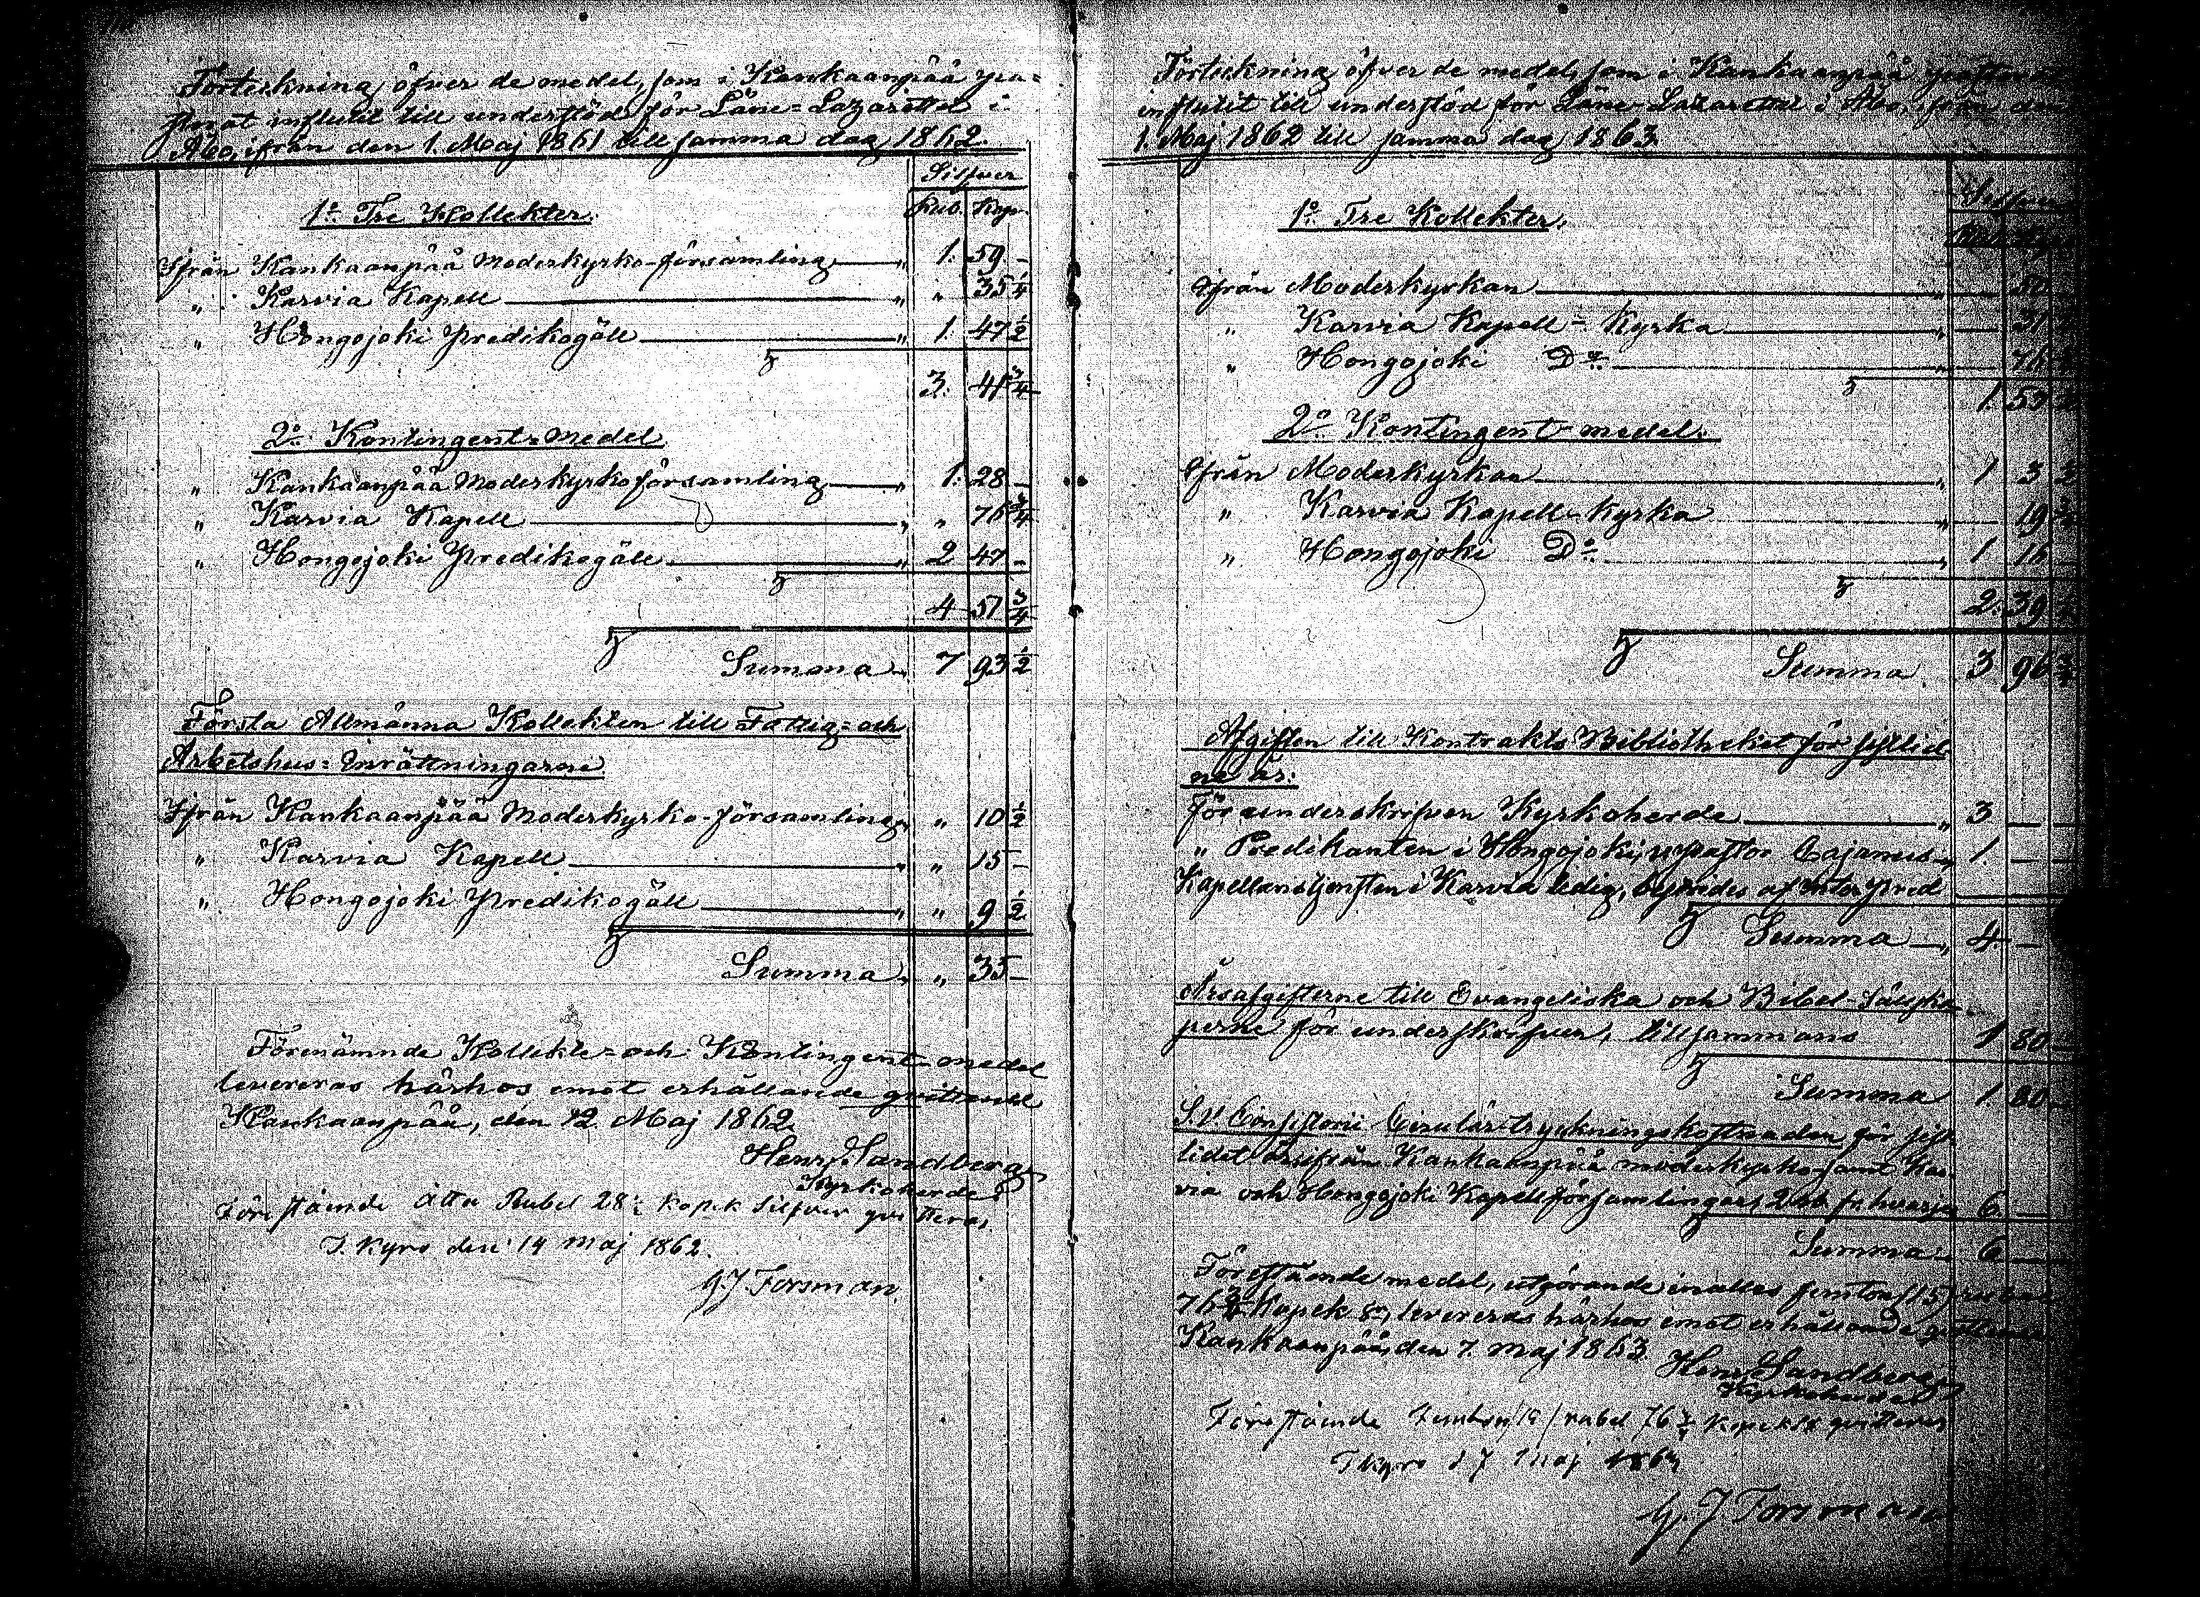 Förteckning öfver de medel, som i Kankaanpää pa=
storat influtit till understöd för Läne=Lazarettet i
Åbo, ifrån den 1. Maj 1861 till samma dag 1862.
Silfver
Rub. Kop.
1º Tre Kollekter.
Ifrån Kankaanpää Moderkyrko-församling „ 1. 59 –
„ Karvia Kapell „ „ 35 1/4
„ Hongojoki Predikogäll „ 1. 47 1/2
3. 41 3/4
2º Kontingent=medel
„ Kankaanpää Moderkyrkoförsamling „ 1. 28 –
„ Karvia Kapell „ „ 76 3/4
„ Hongojoki Predikogäll „ 2 47 –
4 51 3/4
Summa „ 7 93 1/2
Första Allmänna Kollekten till Fattig= och
Arbetshus=Inrättningarne
Ifrån Kankaanpää Moderkyrko-församling „ „ 10 1/2
„ Karvia Kapell „ „ 15 –
„ Hongojoki Predikogäll „ „ 9 1/2
Summa „ „ 35 –
Förenämnde Kollekte= och Kontingent-medel
levereras härhos emot erhållande
Kankaanpää, den 12 Maj 1862.
Henr. Sandberg
Kyrkoherde
Föreståinde Åtta Rubel 28 1/2 kopek silfver qvitteras,
I. Kyro den 14 Maj 1862.
G. J. Forsman
Förteckning öfver de medel, som i Kankaanpää
influtit till understöd för Läne-Lazarettet i Åbo, ifrån den
1. Maj 1862 till samma dag 1863.
Silfver
1º Tre Kollekter.
Ifrån Moderkyrkan „ —
„ Karvia Kapell=Kyrka „ — 31
„ Hongojoki Dº „ —
1.
2º Kontingent-medel.
Ifrån Moderkyrkan „ 1 3
„ Karvia Kapell-Kyrka „ — 19
„ Hongojoki Dº „ 1 16
2. 39
Summa 3 96
Afgiften till Kontrakts Bibliotheket för sistlid=
ne år:
För underskrifven Kyrkoherde „ 3 — —
„ Predikanten i Hongojoki, Cajanus „ 1. — —
Kapellanstjensten i Karvia ledig, af
Summa „ 4 –
Årsafgifterne till Evangeliska och Bibel-Sällska
perne för underskrifven, tillsammans 1 80 –
Summa 1. 80 –
S. V. Consistorii Cirkulär-tryckningskostnaden för sist
lidet år ifrån Kankaanpää moderkyrko, samt Kar=
via och Hongojoki Kapellförsamlingar, 2 fr. hvarje 6 —
Summa 6 —
Föreståiende medel, utgörande inalles femton (15) rubel
76 3/4 Kopek Sr, levereras härhos emot erhållande
Kankaanpää, den 7. Maj 1863.
Henr. Sandberg
Kyrkoherde
Föreståinde femton /15/ rubel 76 3/4 kopek qvitteras
I Kyro d 7 Maj
G. J. Forsman